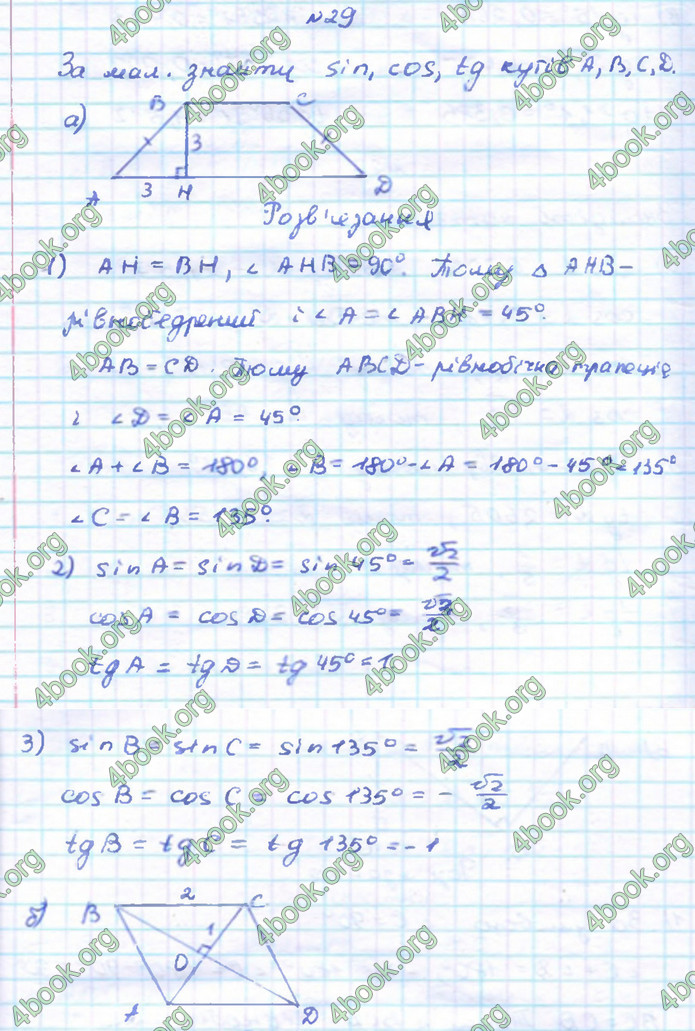 №29
За мал. знайти sin, cos, tg кутів A, B, C, D.
а)
B C
3
A 3 H D
Розв'язання
1) AH = BH, ∠ AHB = 90°. Тому △ AHB –
рівнобедрений і ∠ A = ∠ ABH = 45°.
AB = CD. Тому ABCD – рівнобічна трапеція
і ∠D = ∠A = 45°
∠A + ∠B = 180°, ∠B = 180° - ∠A = 180° - 45° = 135°
∠C = ∠B = 135°.
2) sin A = sin D = sin 45° = √2/2
cos A = cos D = cos 45° = √2/2
tg A = tg D = tg 45° = 1
3) sin B = sin C = sin 135° = √2/2
cos B = cos C = cos 135° = - √2/2
tg B = tg C = tg 135° = - 1
б)
2
B C
1
O
A D
4book.org